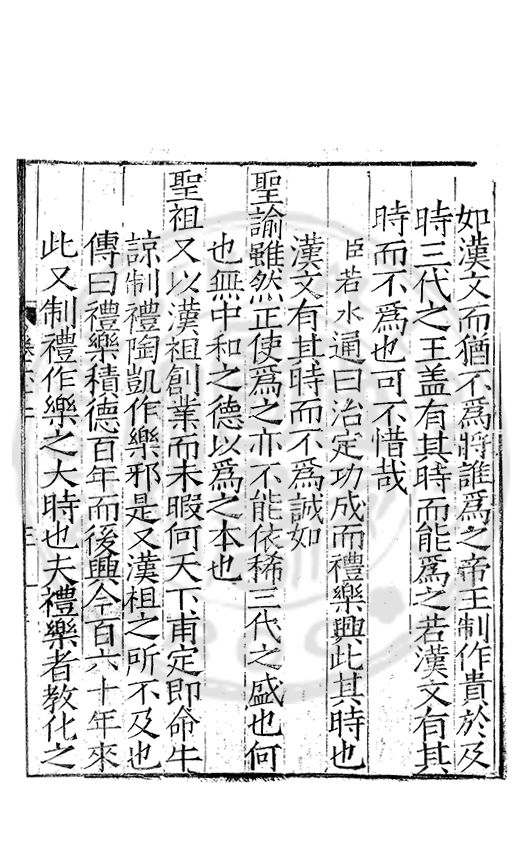 如漢文而猶不爲將誰爲之帝王制作貴於及
時三代之王盖有其時而能爲之若漢文有其
時而不爲也可不惜哉
臣若水通曰治定功成而禮樂興此其時也
漢文有其時而不爲誠如
聖諭雖然正使爲之亦不能依稀三代之盛也何
也無中和之德以爲之本也
聖祖又以漢祖創業而未暇何天下甫定即命牛
諒制禮陶凱作樂邪是又漢祖之所不及也
傳曰禮樂積德百年而後興今百六十年來
此又制禮作樂之大時也夫禮樂者教化之